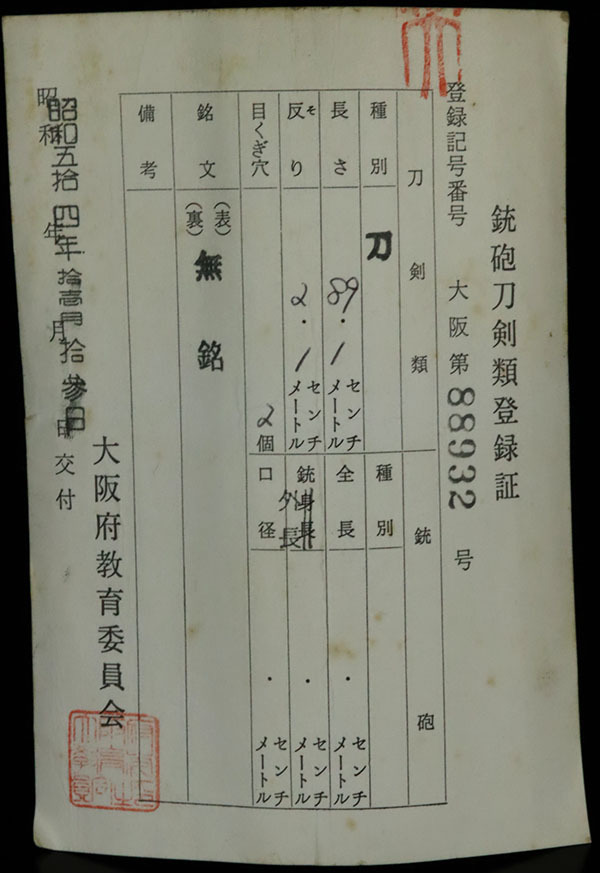 銃砲刀剣類登録証
登録記号番号 大阪第88932号
刀剣類
種別 刀
長さ 89.1 センチメートル
反り 2.1 センチメートル
ソ
目くぎ穴 2個
銘文 (表) 無銘
(裏)
備考
銃砲
種別
全長 . センチメートル
銃身長 . センチメートル
外長
口径 . センチメートル
昭和 年 月 日交付
昭和五拾四年拾壱月拾参日
大阪府教育委員会